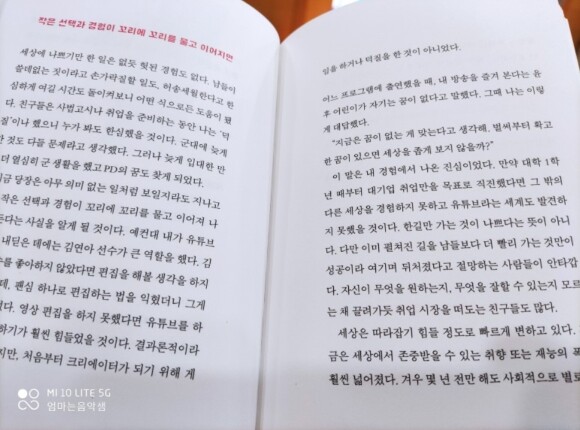 작은 선택과 경험이 꼬리에 꼬리를 물고 이어지면
세상에 나쁘기만 한 일은 없듯 헛된 경험도 없다. 남들이
쓸데없는 짓이라고 손가락질할 일도, 허송세월한다고 한
심하게 여길 시간도 돌이켜보니 어떤 식으로든 도움이 됐
다. 친구들은 사법고시나 취업을 준비하는 동안 나는 '덕
질'이나 했으니 누가 봐도 한심했을 것이다. 군대에 늦게
간 것도 다들 문제라고 생각했다. 그러나 늦게 입대한 만
더 열심히 군 생활을 했고 PD의 꿈도 찾게 되었다.
지금 당장은 아무 의미 없는 일처럼 보일지라도 지나고
작은 선택과 경험이 꼬리에 꼬리를 물고 이어져 나
든다는 사실을 알게 될 것이다. 예컨대 내가 유튜브
내딛은 데에는 김연아 선수가 큰 역할을 했다. 김
수를 좋아하지 않았다면 편집을 해볼 생각을 하지
데, 팬심 하나로 편집하는 법을 익혔더니 그게
었다. 영상 편집을 하지 못했다면 유튜브를 하
하기가 훨씬 힘들었을 것이다. 결과론적이라
지만, 처음부터 크리에이터가 되기 위해 게
임을 하거나 덕질을 한 것이 아니었다.
어느 프로그램에 출연했을 때, 내 방송을 즐겨 본다는 윤
후 어린이가 자기는 꿈이 없다고 말했다. 그때 나는 이렇
게 대답했다.
"지금은 꿈이 없는 게 맞는다고 생각해. 벌써부터 확고
한 꿈이 있으면 세상을 좁게 보지 않을까?"
이 말은 내 경험에서 나온 진심이었다. 만약 대학 1학
년 때부터 대기업 취업만을 목표로 직진했다면 그 밖의
다른 세상을 경험하지 못하고 유튜브라는 세계도 발견하
지 못했을 것이다. 한길만 가는 것이 나쁘다는 뜻이 아니
다. 다만 이미 펼쳐진 길을 남들보다 더 빨리 가는 것만이
성공이라 여기며 뒤처졌다고 절망하는 사람들이 안타깝
다. 자신이 무엇을 원하는지, 무엇을 잘할 수 있는지 모르
는 채 끌려가듯 취업 시장을 떠도는 친구들도 많다.
세상은 따라잡기 힘들 정도로 빠르게 변하고 있다.
금은 세상에서 존중받을 수 있는 취향 또는 재능의 폭
훨씬 넓어졌다. 겨우 몇 년 전만 해도 사회적으로 별로
MI 10 LITE 5G
엄마는음악샘